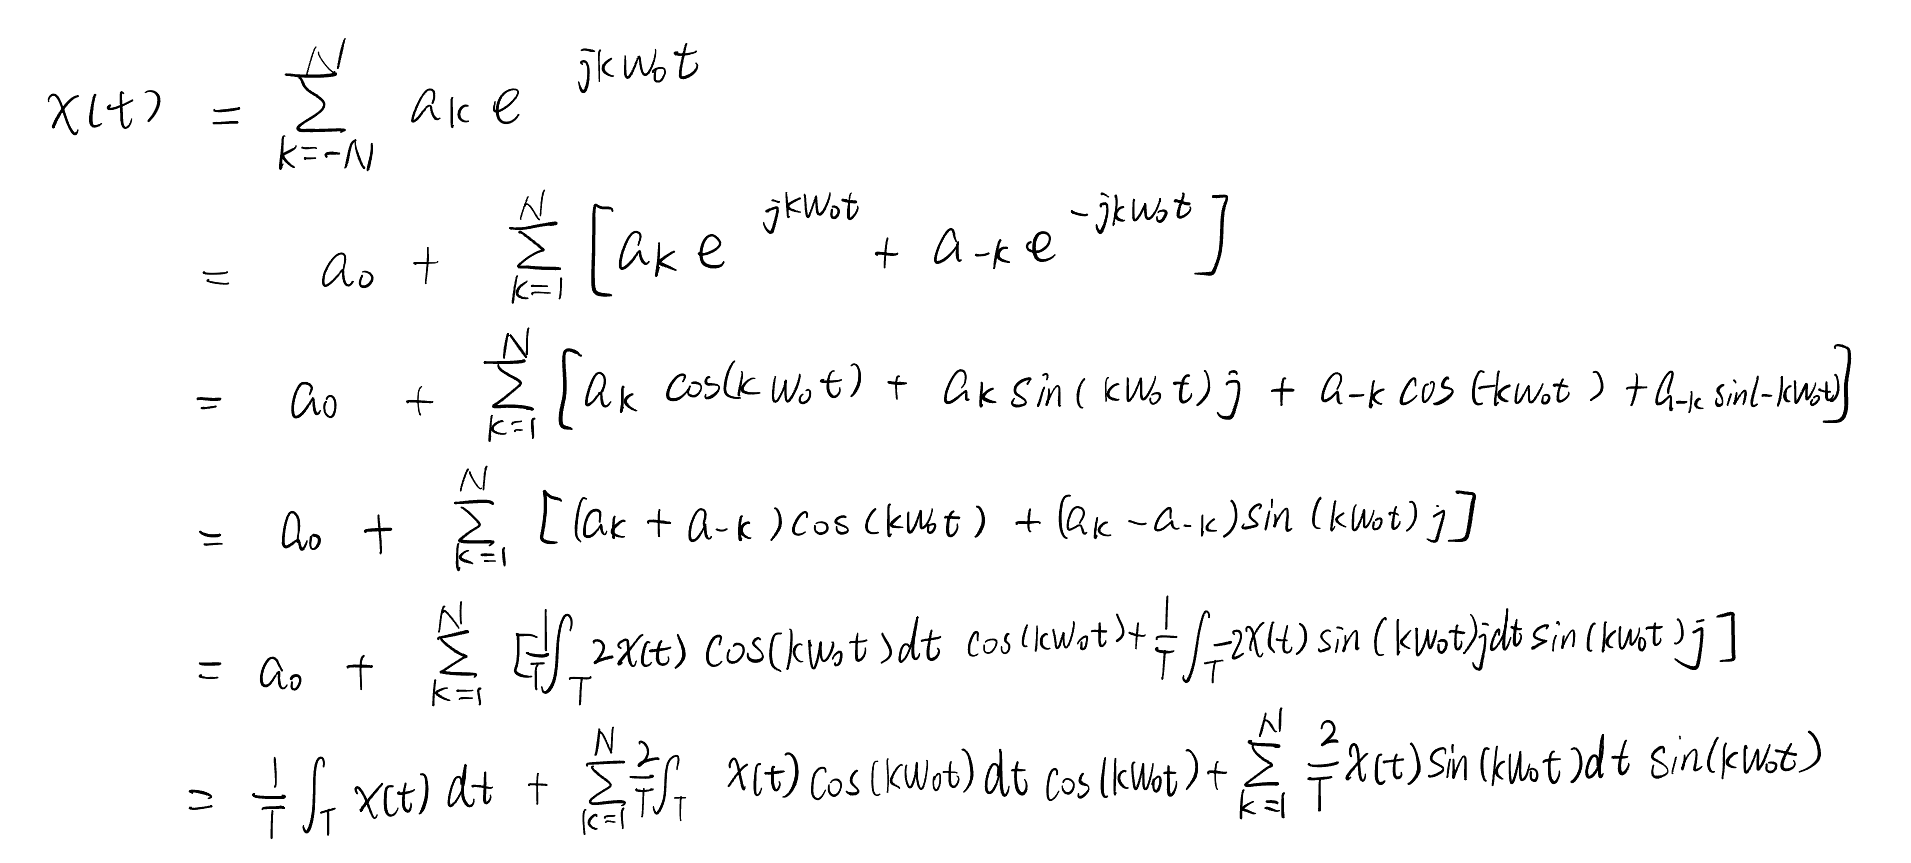 x(t) = \sum_{k=-N}^{N} a_k e^{jkw_0t}
= a_0 + \sum_{k=1}^{N} [a_k e^{jkw_0t} + a_{-k} e^{-jkw_0t}]
= a_0 + \sum_{k=1}^{N} [a_k cos(kw_0t) + a_k sin(kw_0t)j + a_{-k} cos(-kw_0t) + a_{-k} sin(-kw_0t)]
= a_0 + \sum_{k=1}^{N} [(a_k + a_{-k})cos(kw_0t) + (a_k - a_{-k})sin(kw_0t)j]
= a_0 + \sum_{k=1}^{N} [\frac{1}{T}\int_T 2x(t) cos(kw_0t)dt cos(kw_0t) + \frac{1}{T}\int_T -2x(t) sin(kw_0t)jdt sin(kw_0t)j]
= \frac{1}{T}\int_T x(t) dt + \sum_{k=1}^{N} \frac{2}{T}\int_T x(t) cos(kw_0t) dt cos(kw_0t) + \sum_{k=1}^{N} \frac{2}{T} x(t) sin(kw_0t)dt sin(kw_0t)